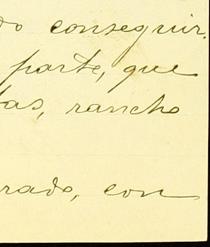 do conseguir.
parte, que
tas, rancho
rado, con